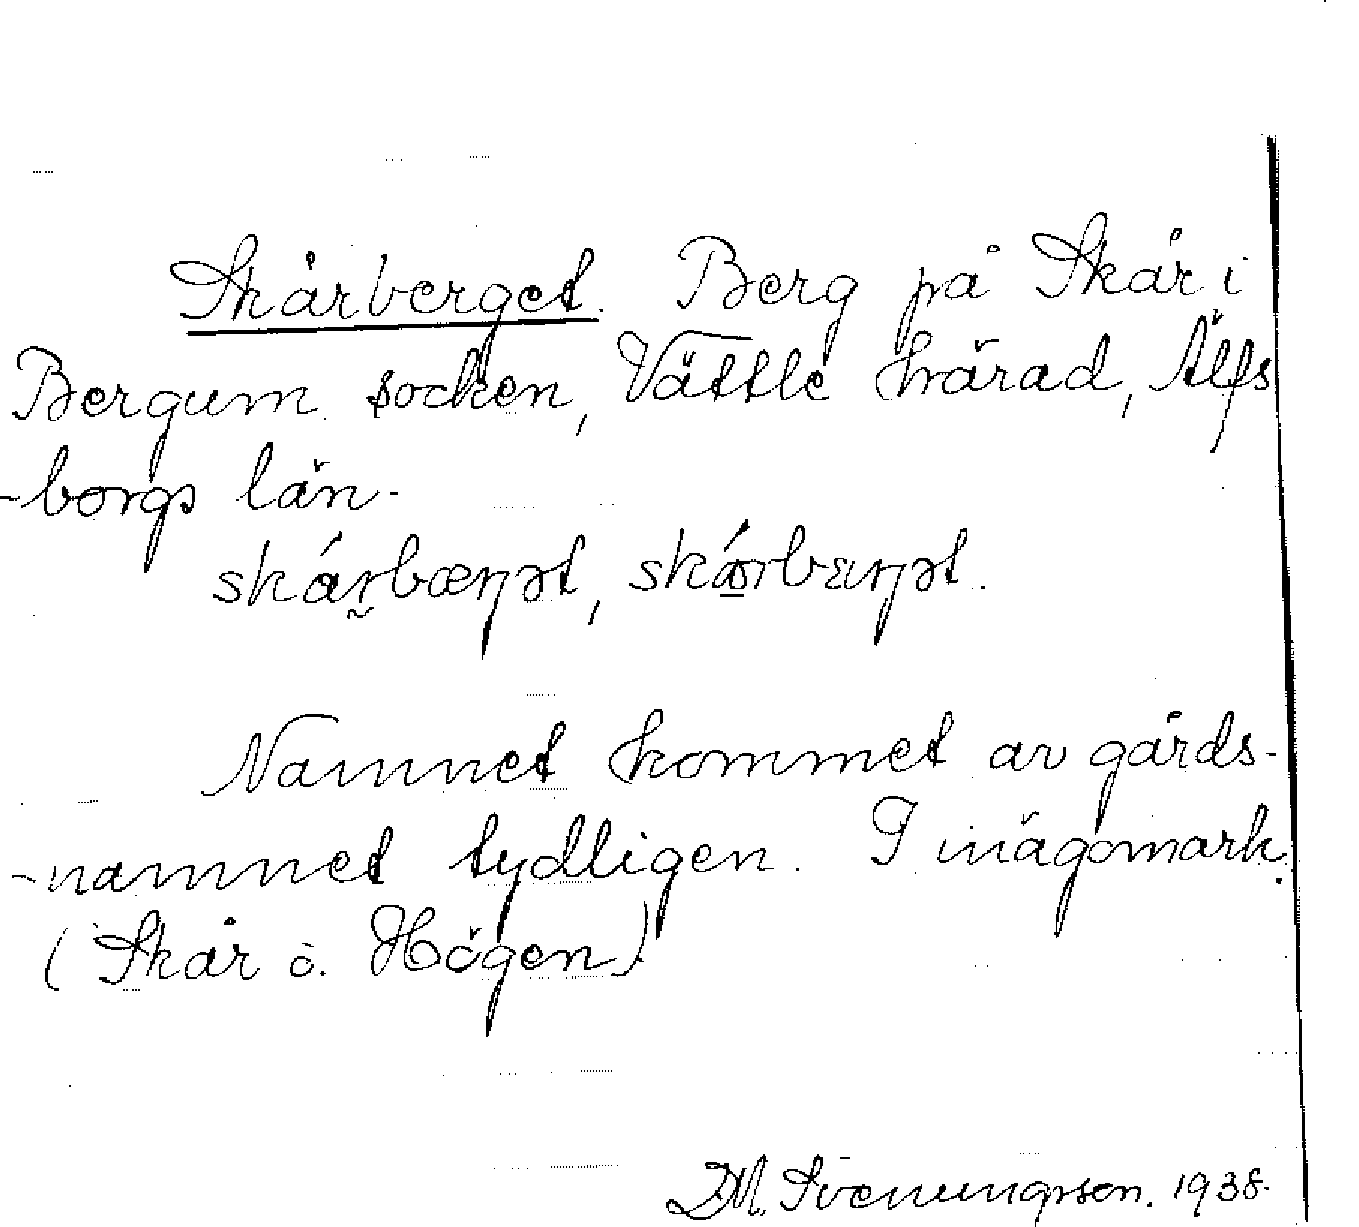 Skårberget. Berg på Skår i
Bergum socken, Vättle härad, Älfs
-borgs län.
skárbærjət, skårbærjət.
Namnet kommet av gårds-
-namnet tydligen. I inägomark.
(Skår ö. Högen)
D.M. Svenungsson. 1938.